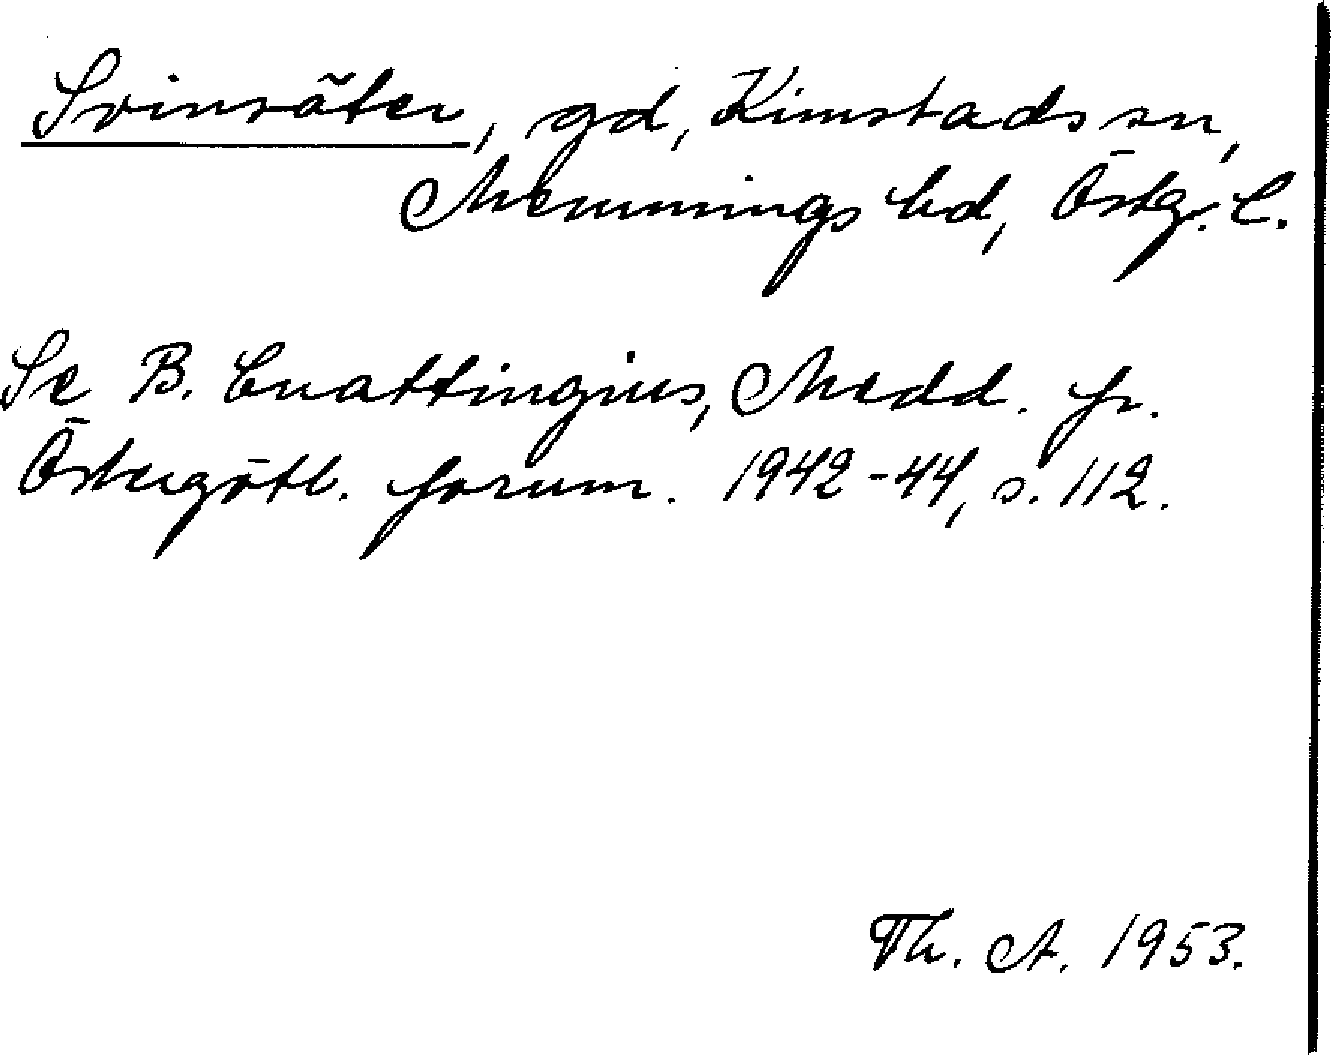 Svinsäter, gd, Kimstads sn,
Memmings hd, Östg. l.
Se B. Cnattingius, Medd. fr.
Östergötl. fornm. 1942-44, s. 112.
Th. A. 1953.